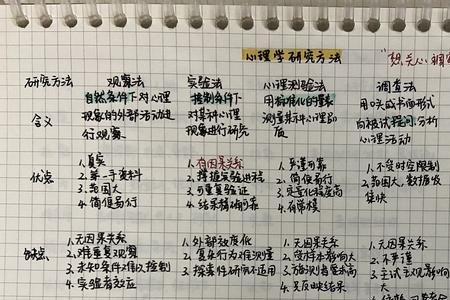 心理学研究方法
研究方法 观察法 实验法 心理测验法 调查法
含义
自然条件下对心理
现象的外部活动进
行观察
控制条件下
对某种心理
现象进行研究
用标准化的量表
测量某种心理品
质
用口头或书面形式
向被试提问,分析
心理活动
优点
1.真实
2.第一手资料
3.范围大
4.简便易行
1.有因果关系
2.掌握实验进程
3.可重复验证
4.结果精确可靠
1.严谨可靠
2.简便易行
3.定量化程度高
4.有常模
1.不受时空限制
2.范围大,数据收
集快
缺点
1.无因果关系
2.难重复观察
3.未知条件难以控制
4.实验者效应
1.外部效度低
2.复杂行为难测量
3.探索性研究不适用
1.无因果关系
2.受样本影响大
3.施测者要求高
4.只反映结果
1.无因果关系
2.不严谨
3.主试主观影响
大